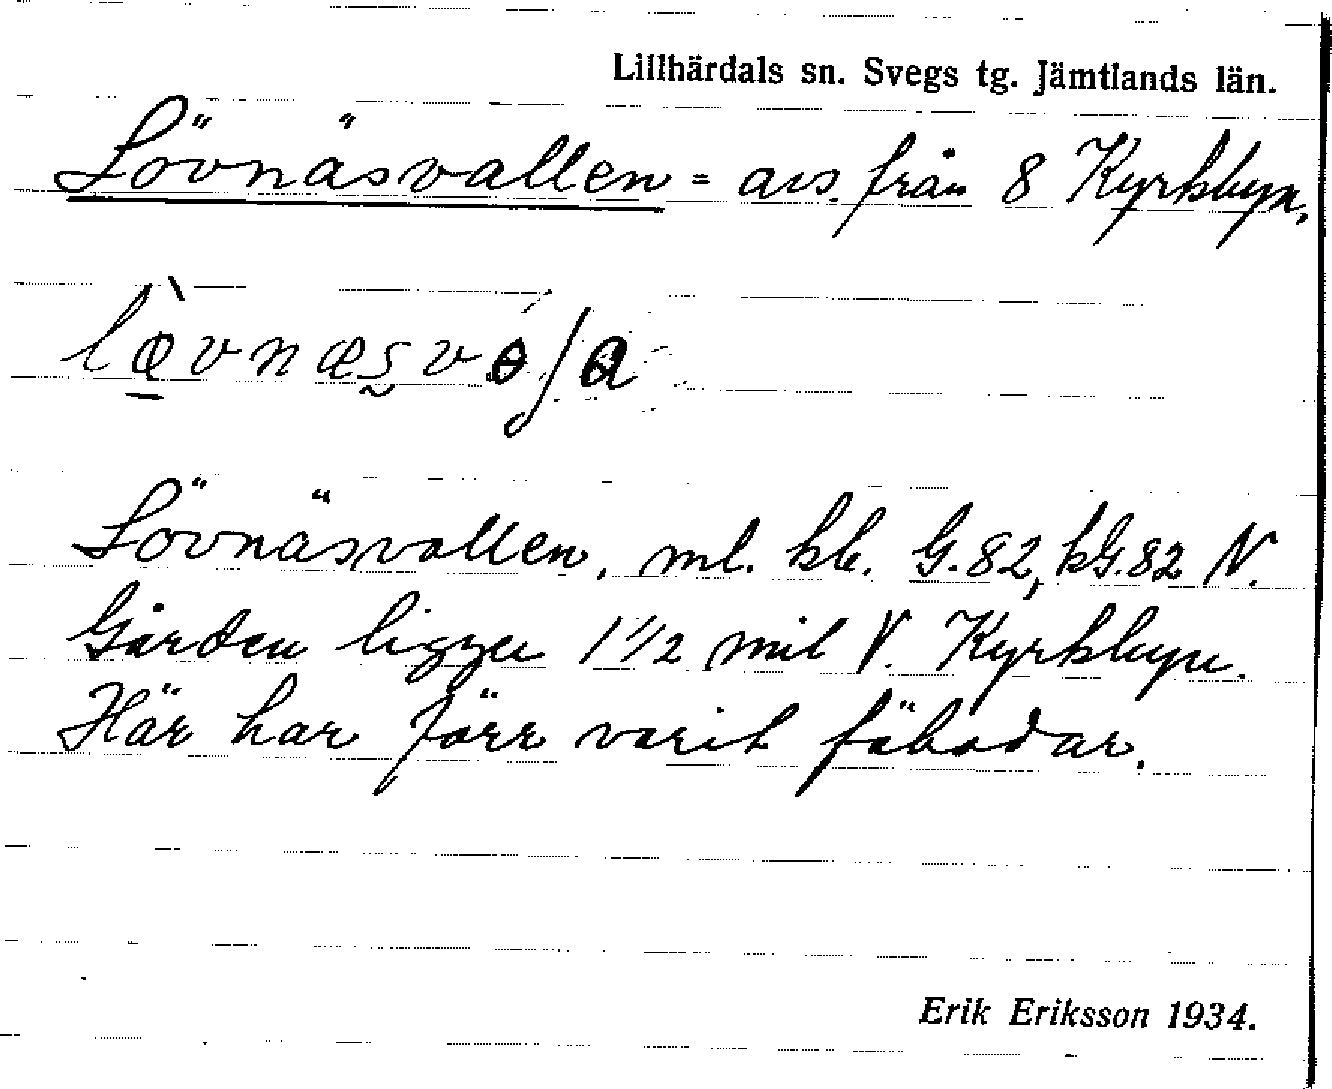 Lillhärdals sn. Svegs tg. Jämtlands län.
Lövnäsvallen = avs. från 8 Kyrkbyn.
Lövnäsvallen, ml. kb. G.82, kG.82 N.
Gården ligger 1 1/2 mil V. Kyrkbyn.
Här har förr varit fäbodar.
Erik Eriksson 1934.